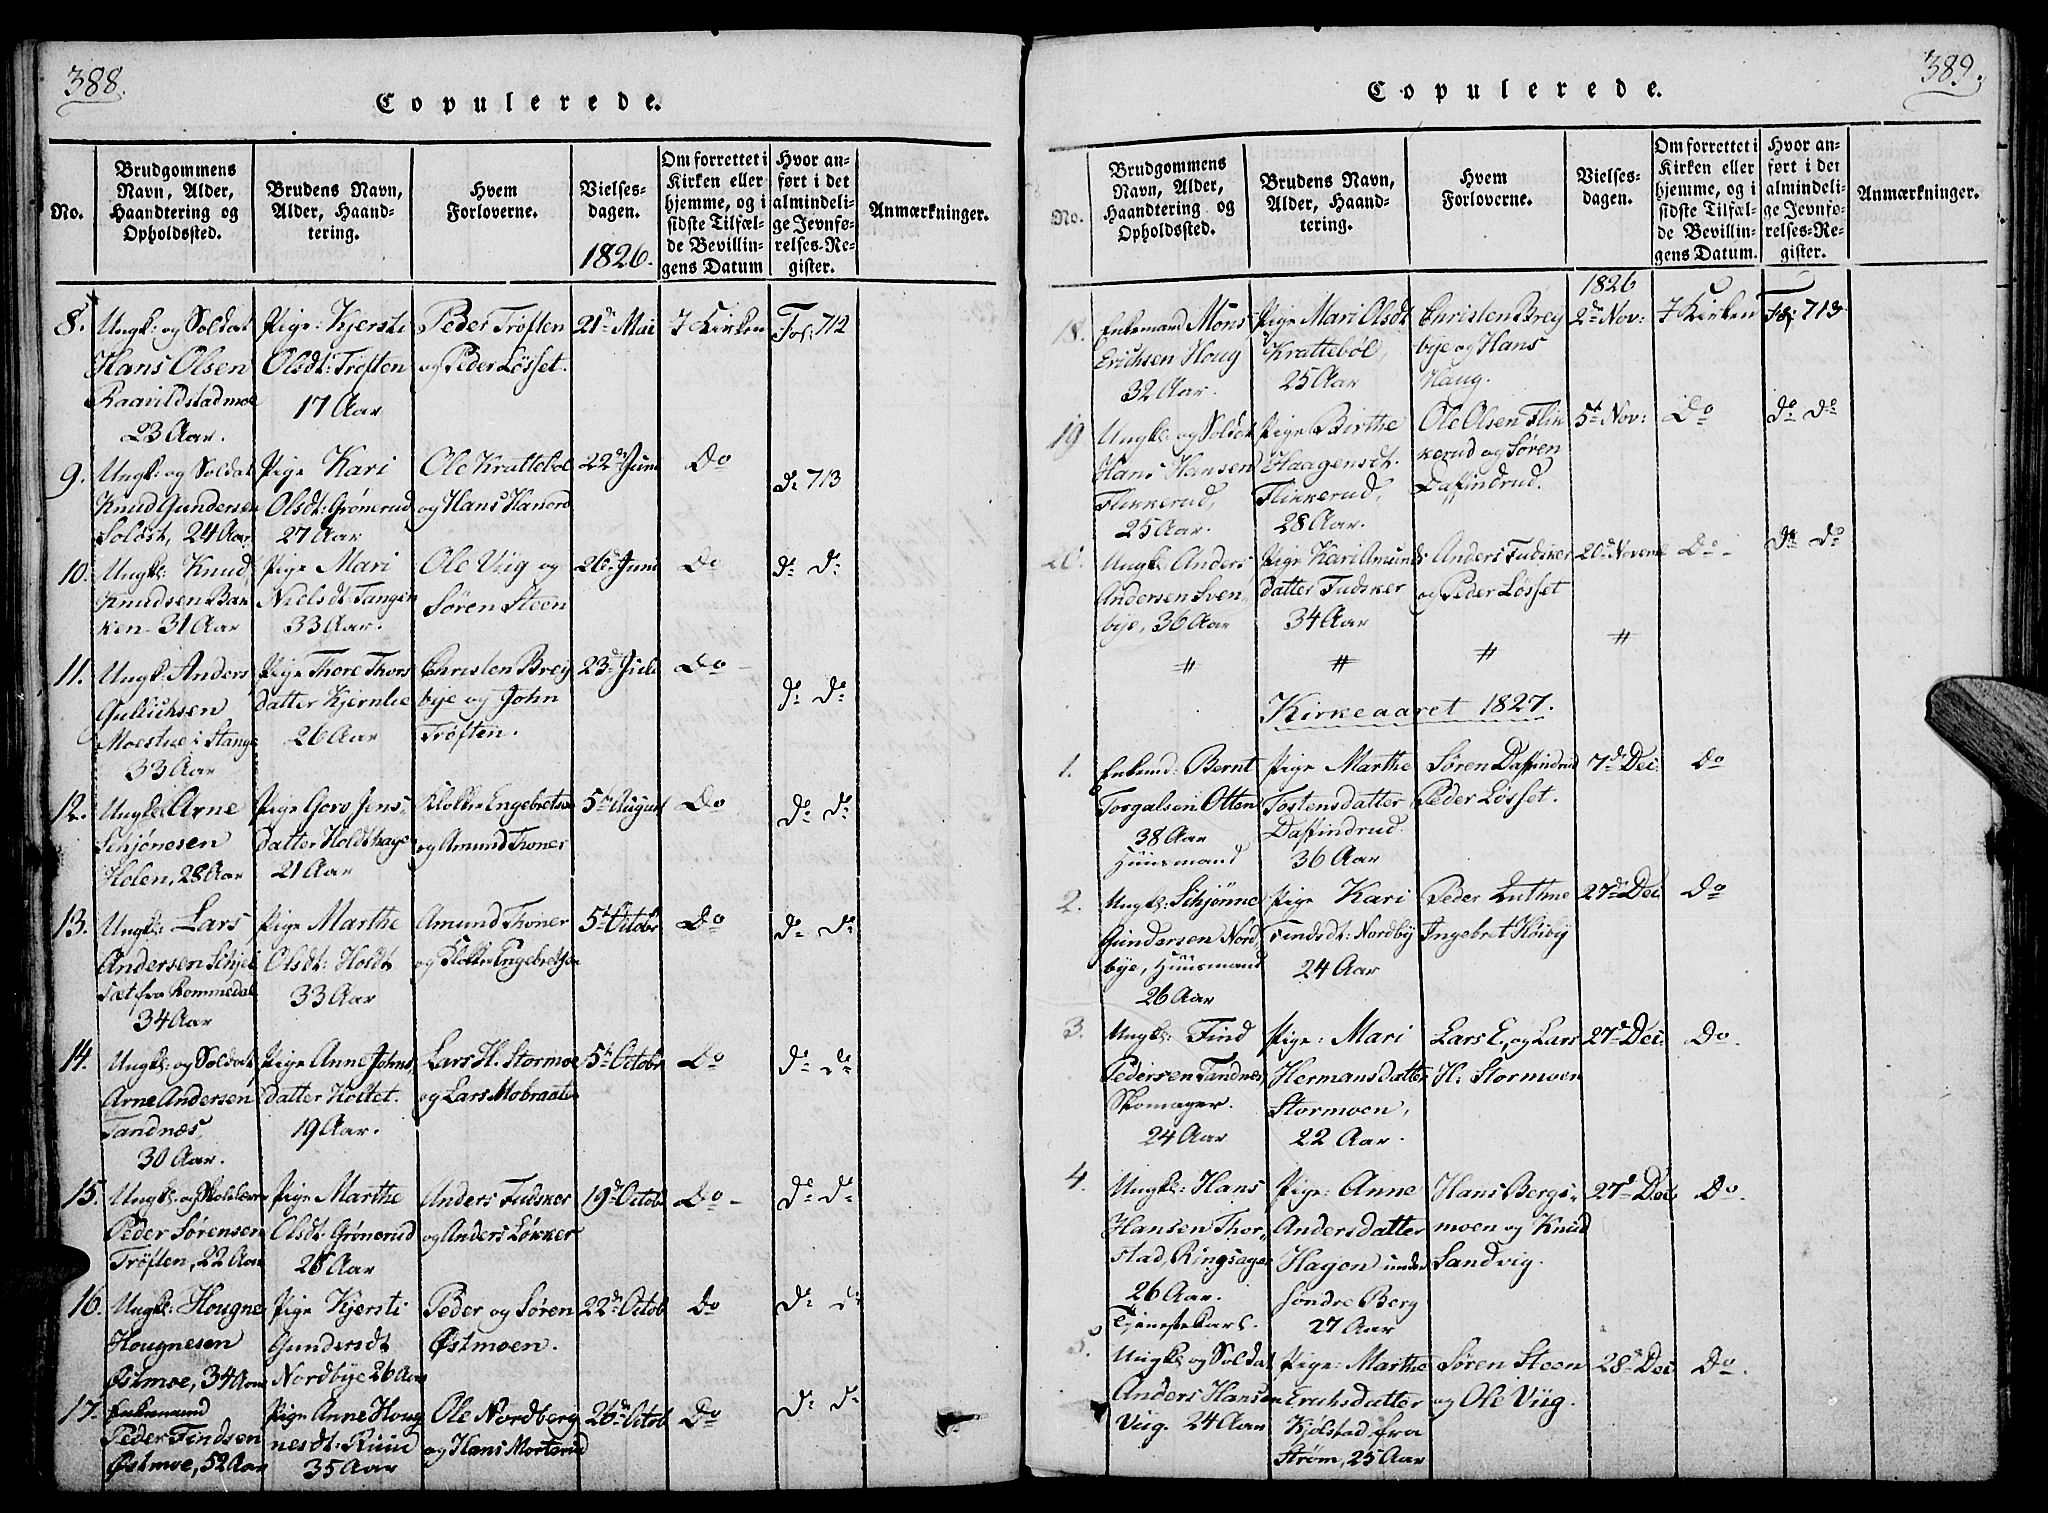 388.
Copulerede.
No.
Brudgommens Navn, Alder, Haandtering og Opholdssted.
Brudens Navn, Alder, Haandtering.
Hvem Forloverne.
Vielsesdagen.
1826.
Om forrettet i Kirken eller hjemme, og i sidste Tilfælde Bevillingens Datum
Hvor anført i det almindelige Jevnførelses-Register.
Anmærkninger.
8. Ungk: og Soldat Hans Olsen Raavildstadmoe 23 Aar.
Pige: Kjersti Olsdt: Trøften 17 Aar
Peder Trøften og Peder Løsset.
21de Mai
I Kirken
Fol: 712
9. Ungk: og Soldat Knud Gundersen Soløst, 24 Aar
Pige Kari Olsdt: Grønerud 27 Aar
Ole Kratteböl og Hans Hanerd
22de Juni
Do
do 713
10. Ungk: Knud Knudsen Bakken 31 Aar
Pige Mari Nielsdt: Tangen 33 Aar.
Ole Viig og Søren Steen
26de Juni
Do
do do
11. Ungk: Anders Gulichsen Moestue i Stange 33 Aar
Pige Thore Thorsdatter Kjernlie 26 Aar
Christen Breybye og John Trøften.
23de Juli
Do
do do
12. Ungk: Arne Schjønesen Holen, 28 Aar
Pige Goro Jensdatter Holdthage 21 Aar
Klokker Engebretsen og Amund Thoner
5te August
Do
do do
13. Ungk: Lars Andersen Schjelsæt fra Rommedal 34 Aar
Pige Marthe Olsdt: Holdt 33 Aar
Amund Thoner og Klokker Engebretsen
5te Octobr
Do
do do
14. Ungk: og Soldat Arne Andersen Tandnæs, 30 Aar.
Pige Anne Johnsdatter Holtet. 19 Aar.
Lars H. Stormoe og Lars Mobraaten
5te Octobr
Do
do do
15. Ungk: og Peder Sørensen Trøften, 22 Aar
Pige Marthe Olsdt. Grønerud 28 Aar
Anders Tudsker og Anders Løkker
19de Octob
Do
do do
16. Ungk: Hougne Hougnesen Østmoe, 34 Aar
Pige Kjersti Gundersdt Nordbye 26 Aar
Peder og Søren Østmoen.
22de Octob
Do
do do
17. Enkemand Peder Findsen Østmoe, 52 Aar
Pige Anne Hougnesdt. Ruu 35 Aar
Ole Nordberg og Hans Morterud
26de Octob
Do
do do
389.
Copulerede.
No.
Brudgommens Navn, Alder, Haandtering og Opholdssted.
Brudens Navn, Alder, Haandtering.
Hvem Forloverne.
Vielsesdagen.
Om forrettet i Kirken eller hjemme, og i sidste Tilfælde Bevillingens Datum.
Hvor anført i det almindelige Jevnførelses-Register.
Anmærkninger.
1826
18. Enkemand Mons Erichsen Houg 32 Aar.
Pige Mari Olsdt Kratteböl, 25 Aar
Christen Breybye og Hans Haug.
2de Nov:
I Kirken
Fol: 713
19 Ungk: og Soldat Hans Hansen Flikkerud, 25 Aar.
Pige Birthe Haagensdt. Flikkerud, 28 Aar.
Ole Olsen Flikkerud og Søren Daffindrud.
5te Nov:
Do
do do
20. Ungk: Anders Andersen Svenbye, 36 Aar
Pige Kari Amundsdatter Tudsker 34 Aar
Anders Tudsker og Peder Løsset
20de Novemb
Do
do do
" " " "
Kirkeaaret 1827.
1. Enkemd: Bernt Torgalsen Otten 38 Aar Huusmand
Pige Marthe Tostensdatter Daffindrud. 36 Aar
Søren Daffindrud Peder Løsset.
7de Dec.
Do
2. Ungk: Schjønne Gundersen Nordbye, Huusmand 26 Aar
Pige Kari Findsdt: Nordby 24 Aar
Peder Luthne Ingebret Høiby
27de Dec
Do
3. Ungk: Find Pedersen Tandnæs, Skomager. 24 Aar
Pige: Mari Hermansdatter Stormoen, 22 Aar.
Lars E. og Lars H. Stormoen
27de Dec.
Do.
4. Ungk: Hans Hansen Thorstad, Ringsager 26 Aar. Tjenestekarl.
Pige: Anne Andersdatter Hagen under søndre Berg 27 Aar
Hans Bergsmoen og Knud Sandvig.
27de Dec
Do.
5. Ungk: og Soldat Anders Hansen Viig. 24 Aar
Pige: Marthe Erichsdatter Kjølstad fra Strøm, 25 Aar
Søren Steen og Ole Viig.
28de Dec
Do.